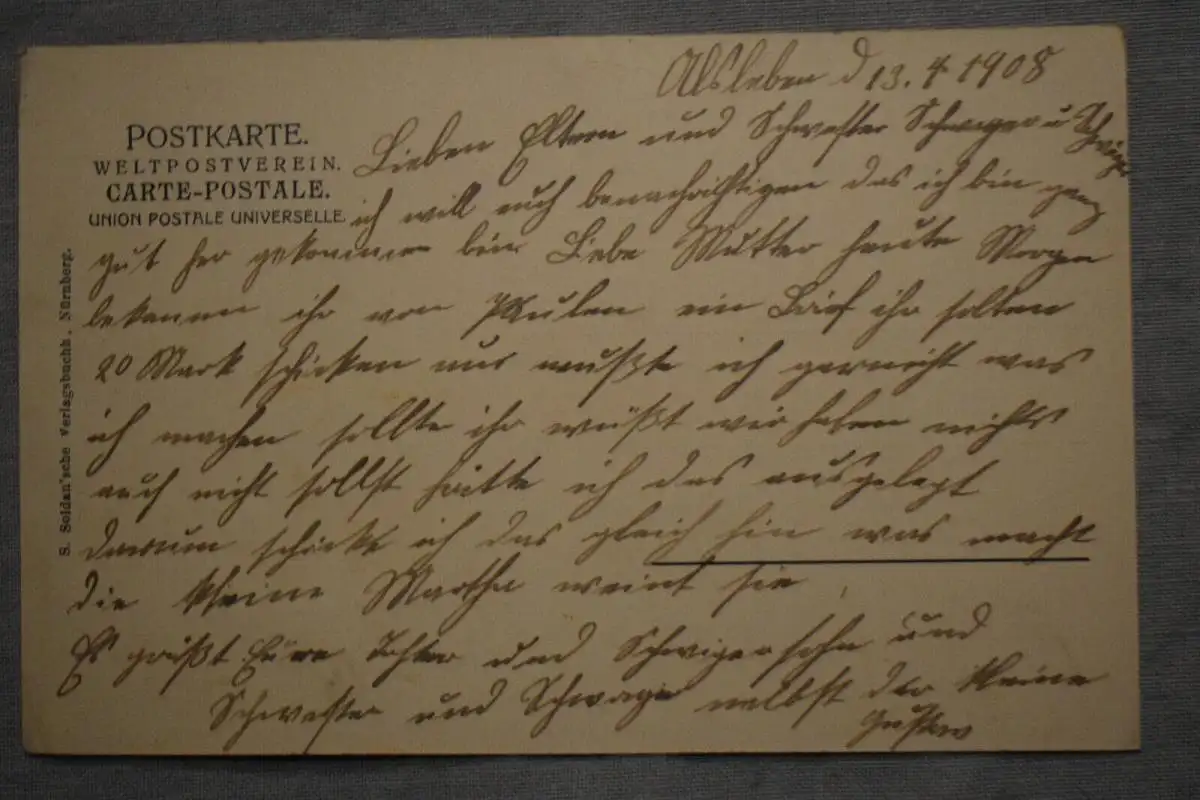 Alsleben d 13.4 1908
POSTKARTE.
WELTPOSTVEREIN.
CARTE-POSTALE.
UNION POSTALE UNIVERSELLE.
S. Soldan'sche Verlagsbuchh. Nürnberg.
Lieben Eltern und Schwester Schwager u
ich will euch benachrichtigen das ich bin ganz
gut her gekommen bin Liebe Mutter heute Morgen
bekamen ihr von Paulen ein Brif ihr solten
20 Mark schicken nur wußte ich garnicht was
ich machen sollte ihr wüßt wir haben nichts
auch nicht sollst hätte ich das ausgelegt
darum schicke ich das gleich hin was macht
die kleine Martha weint sie
Es grüßt Eure Tohter und Schwigersohn und
Schwester und Schwager nebst der kleine
Gustav